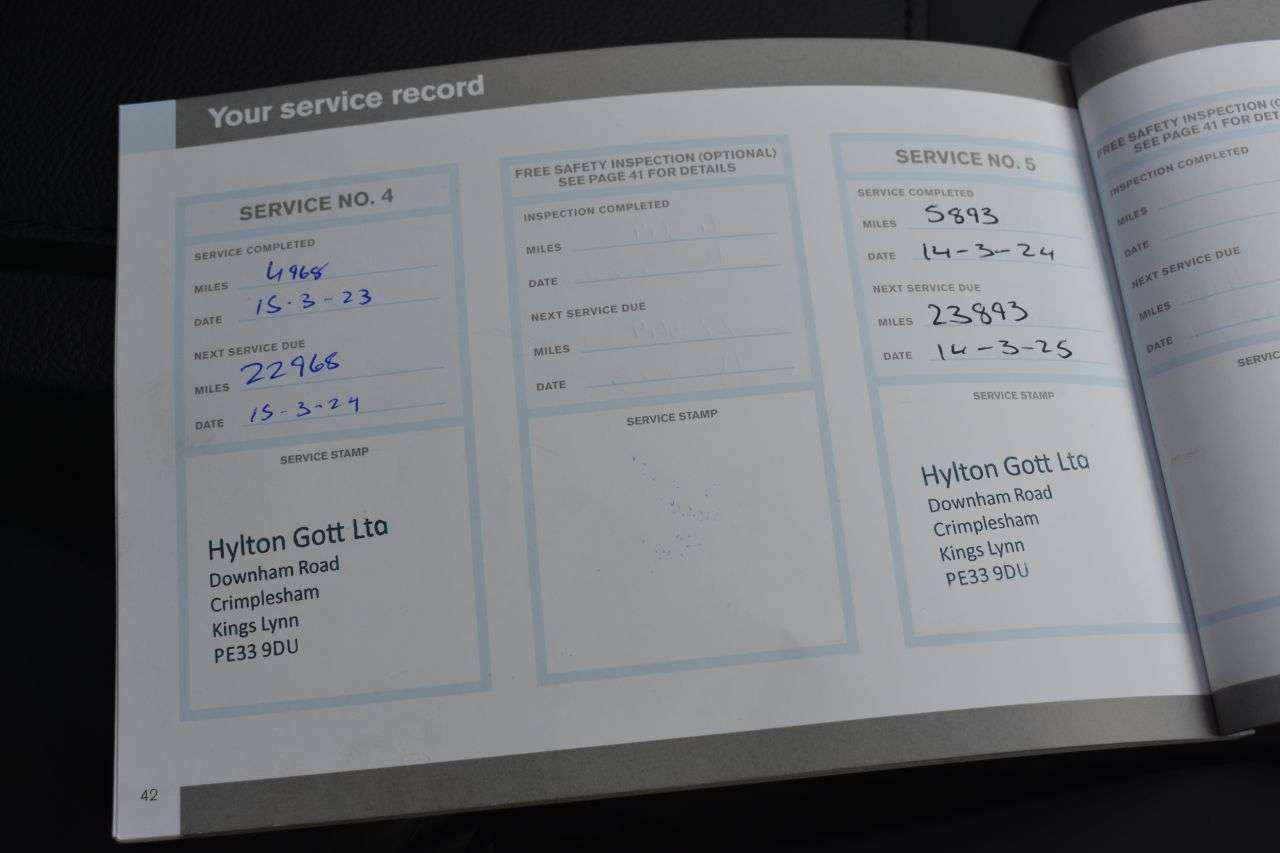 Your service record
SERVICE NO. 4
SERVICE COMPLETED
MILES 4968
DATE 15·3-23
NEXT SERVICE DUE
MILES 22968
DATE 15-3-24
SERVICE STAMP
Hylton Gott Ltd
Downham Road
Crimplesham
Kings Lynn
PE33 9DU
FREE SAFETY INSPECTION (OPTIONAL)
SEE PAGE 41 FOR DETAILS
INSPECTION COMPLETED
MILES
DATE
NEXT SERVICE DUE
MILES
DATE
SERVICE STAMP
SERVICE NO. 5
SERVICE COMPLETED
MILES 5893
DATE 14-3-24
NEXT SERVICE DUE
MILES 23893
DATE 14-3-25
SERVICE STAMP
Hylton Gott Ltd
Downham Road
Crimplesham
Kings Lynn
PE33 9DU
FREE SAFETY INSPECTION
SEE PAGE 41 FOR
INSPECTION COMPLETED
MILES
DATE
NEXT SERVICE DUE
MILES
DATE
42